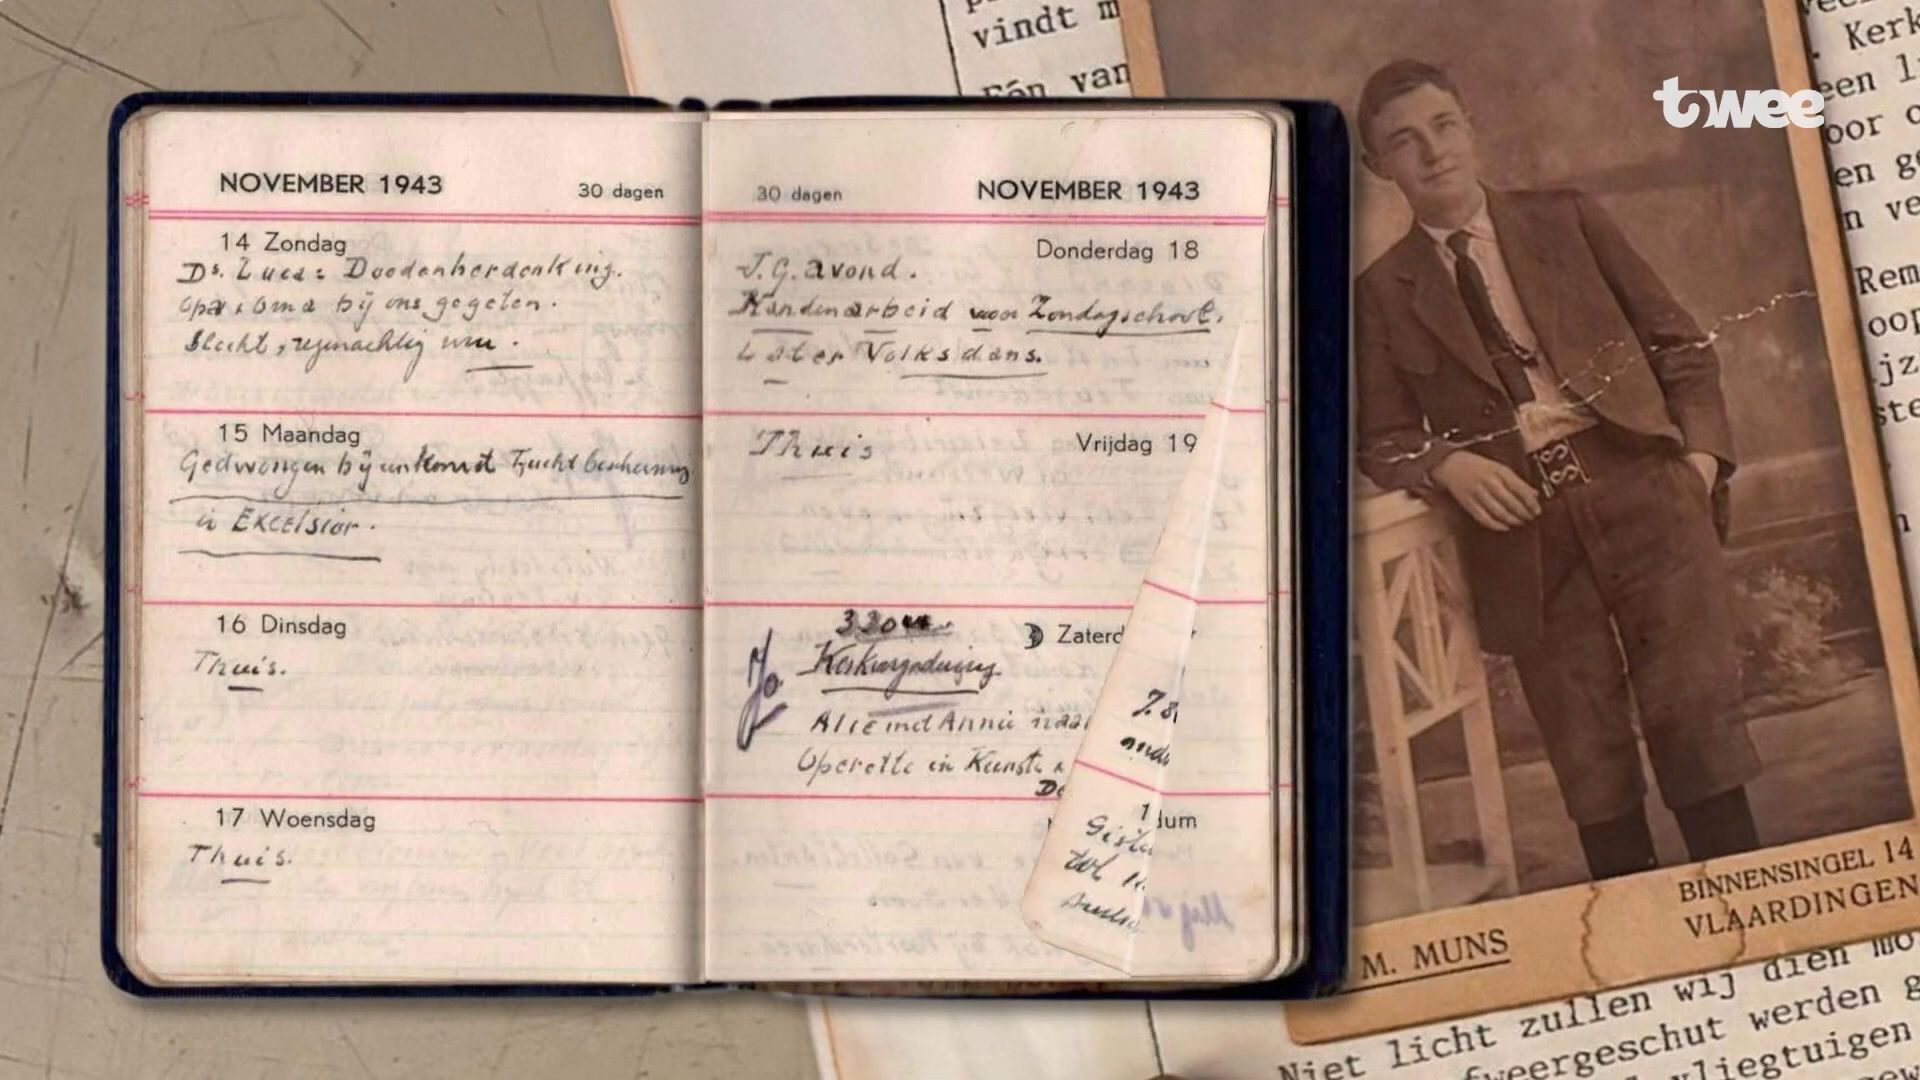 NOVEMBER 1943 30 dagen
14 Zondag
Ds. Lucas: Doodenherdenking.
Opa & Oma bij ons gegeten.
Slecht, regenachtig
15 Maandag
Gedwongen bijeenkomst Luchtbescherming
in Excelsior.
16 Dinsdag
Thuis.
17 Woensdag
Thuis.
30 dagen NOVEMBER 1943
Donderdag 18
J.G. avond.
Handenarbeid voor Zondagschool.
Later Volksdans.
Vrijdag 19
Thuis
330
Zaterd
Jo
Kerkvergadering
Alie met Annie naar
Operette in Kunst
1
dum
twee
vindt m
Eén van
Kerk
een l
oor o
en ge
n ve
Rem
oop
ijz
ste
M. MUNS
BINNENSINGEL 14
VLAARDINGEN
Niet licht zullen wij dien mo
fweergeschut werden g
vliegtuigen